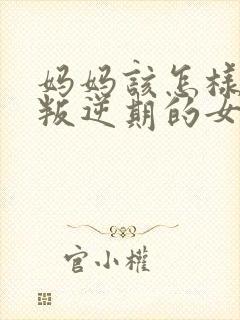 妈妈该怎样
叛逆期的女
官小權